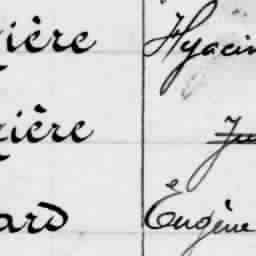 ière Hyacin
ière
ard Eugène